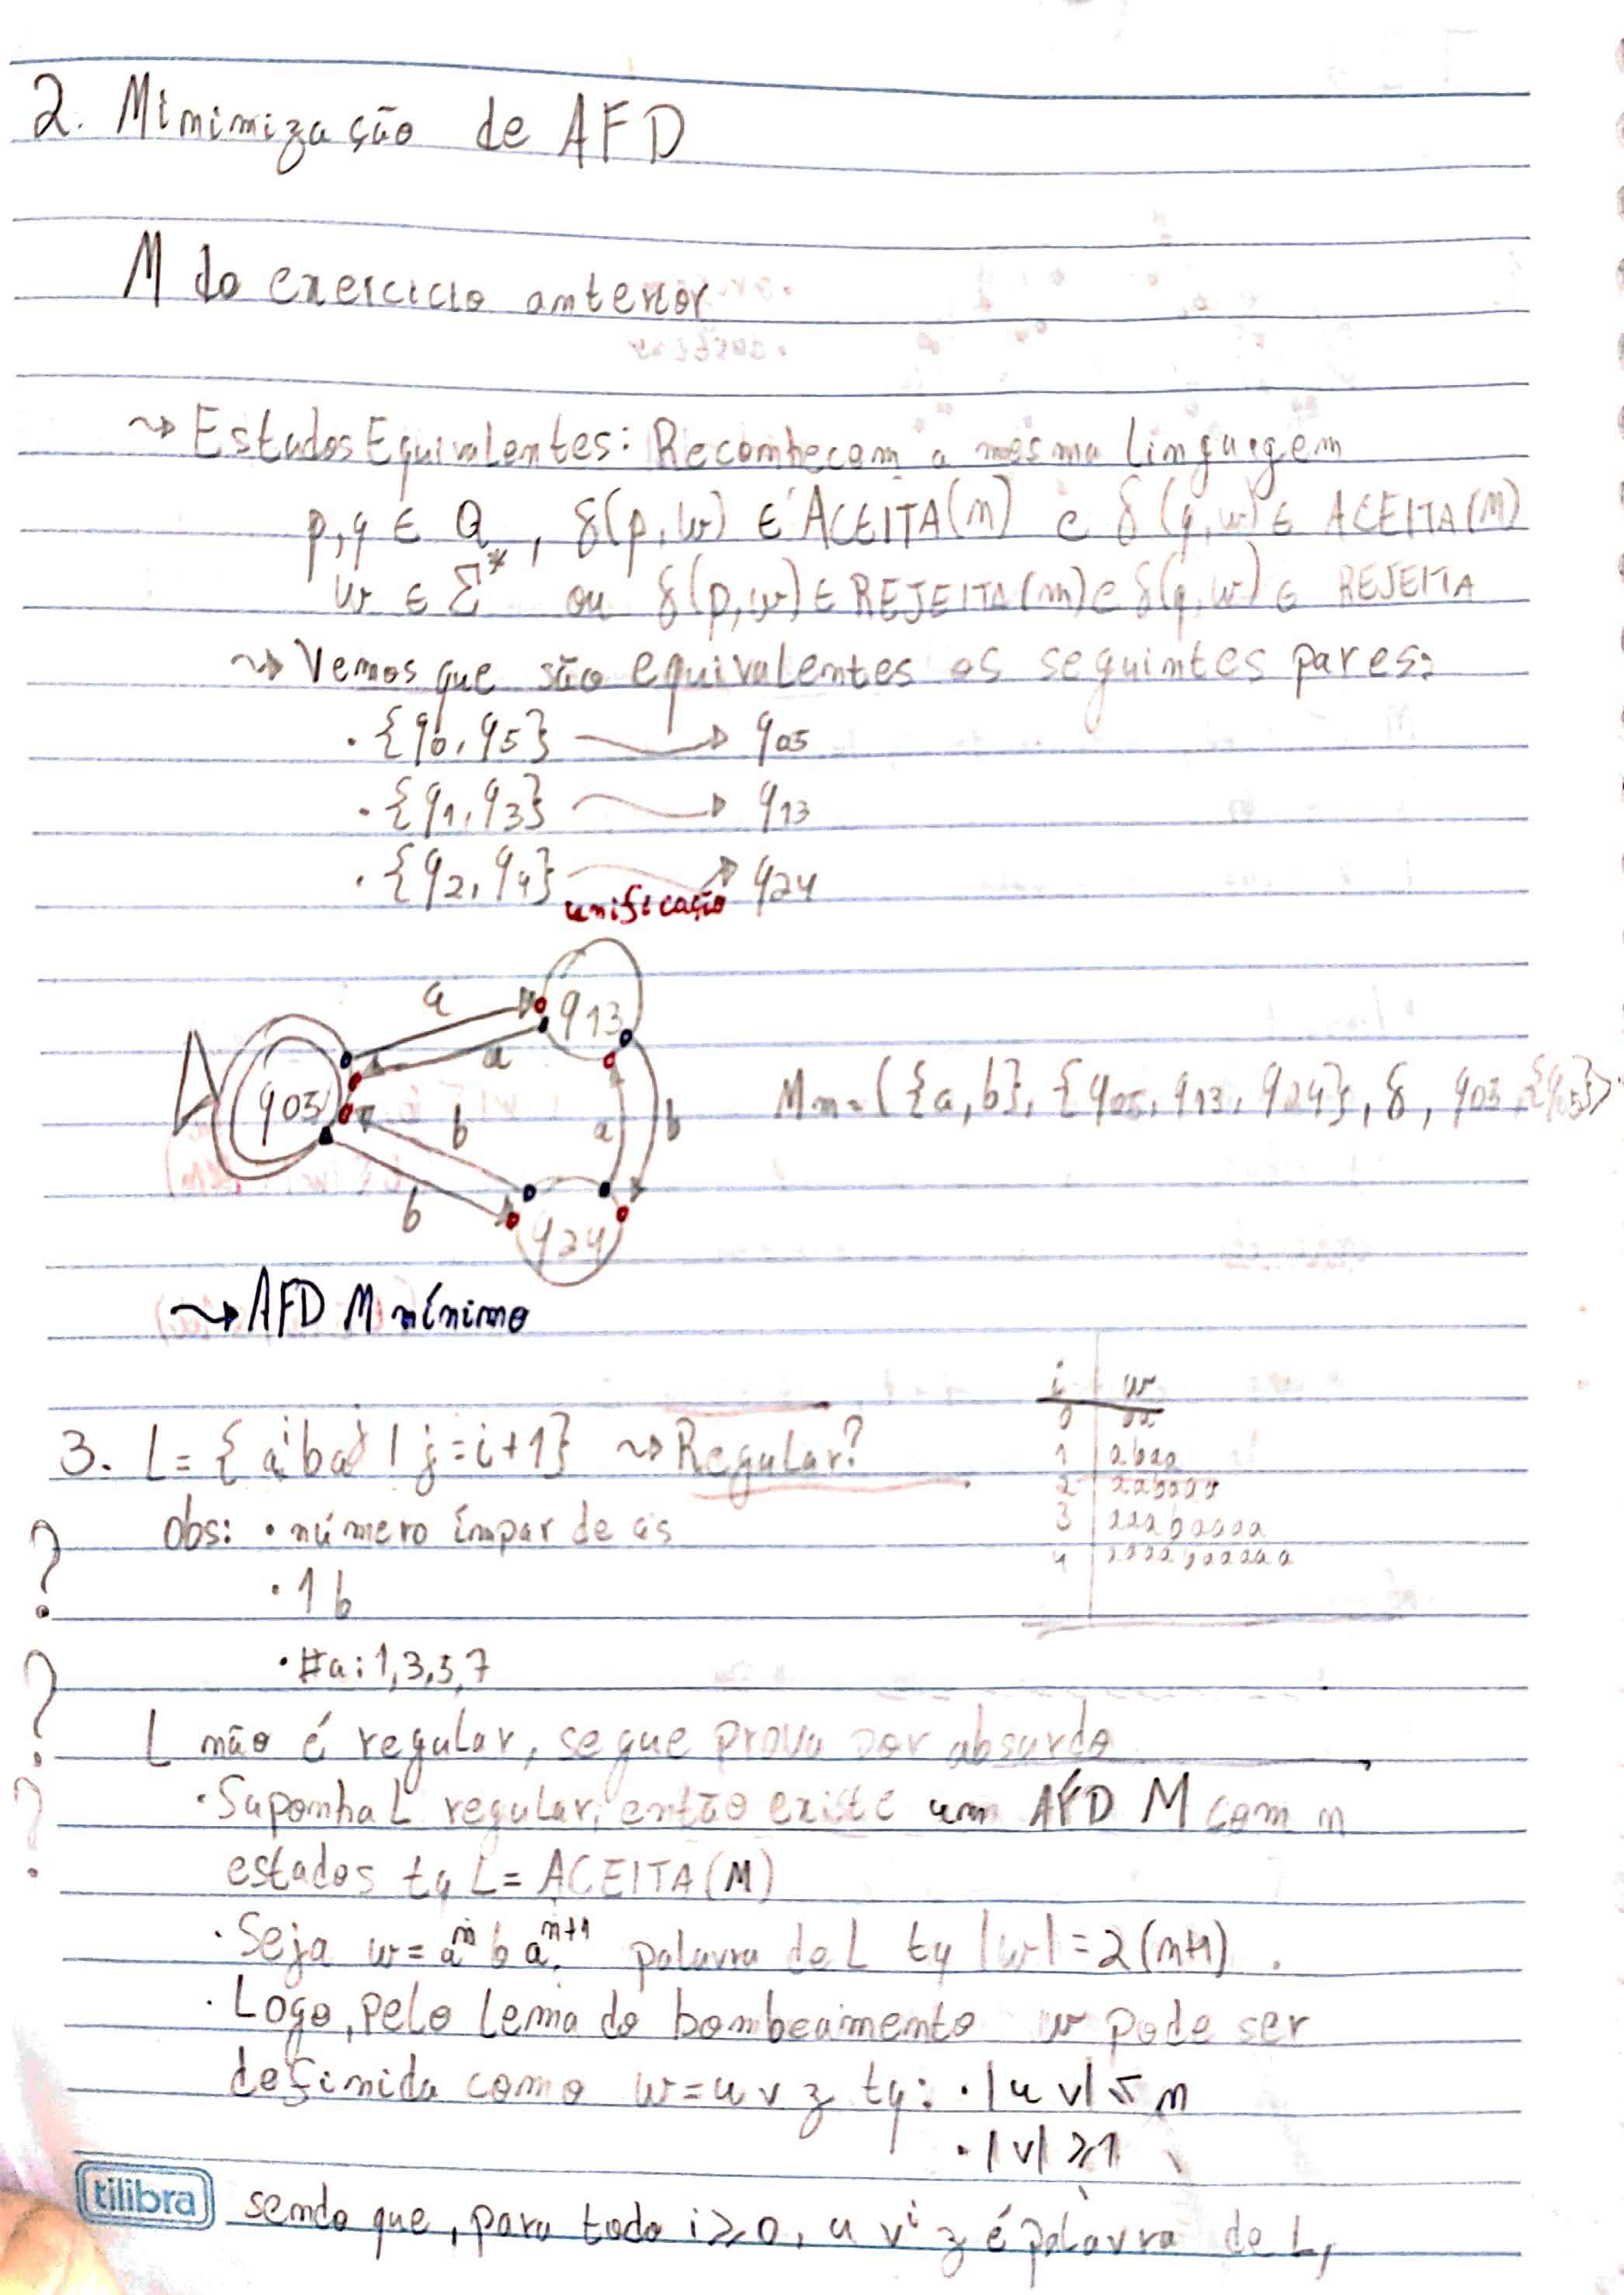 2. Minimização de AFD
M do exercício anterior
~> Estados Equivalentes: Reconhecem a mesma linguagem
p, q ∈ Q, δ(p, w) ∈ ACEITA(M) e δ(q, w) ∈ ACEITA(M)
w ∈ Σ* ou δ(p, w) ∈ REJEITA(M) e δ(q, w) ∈ REJEITA
~> Vemos que são equivalentes os seguintes pares:
• {q0, q5} → q05
• {q1, q3} → q13
• {q2, q4} → q24
unificação
a
q13
a
q05
b
a
b
b
q24
Mm = ({a, b}, {q05, q13, q24}, δ, q05, {q05})
~> AFD M mínimo
3. L = {a^i b a^j | j = i+1} ~> Regular?
i w
0
1 abaa
2 aabaaa
3 aaabaaaa
4
obs: • número ímpar de as
?
• 1 b
• #a: 1, 3, 5, 7
?
L não é regular, segue prova por absurdo
?
• Suponha L regular, então existe um AFD M com n
estados tq L = ACEITA(M)
• Seja w = a^n b a^n+1 palavra de L tq |w| = 2(n+1).
• Logo, pelo lema do bombeamento w pode ser
definida como w = u v z tq: • |u v| ≤ n
• |v| ≥ 1
tilibra
sendo que, para todo i ≥ 0, u v^i z é palavra de L,